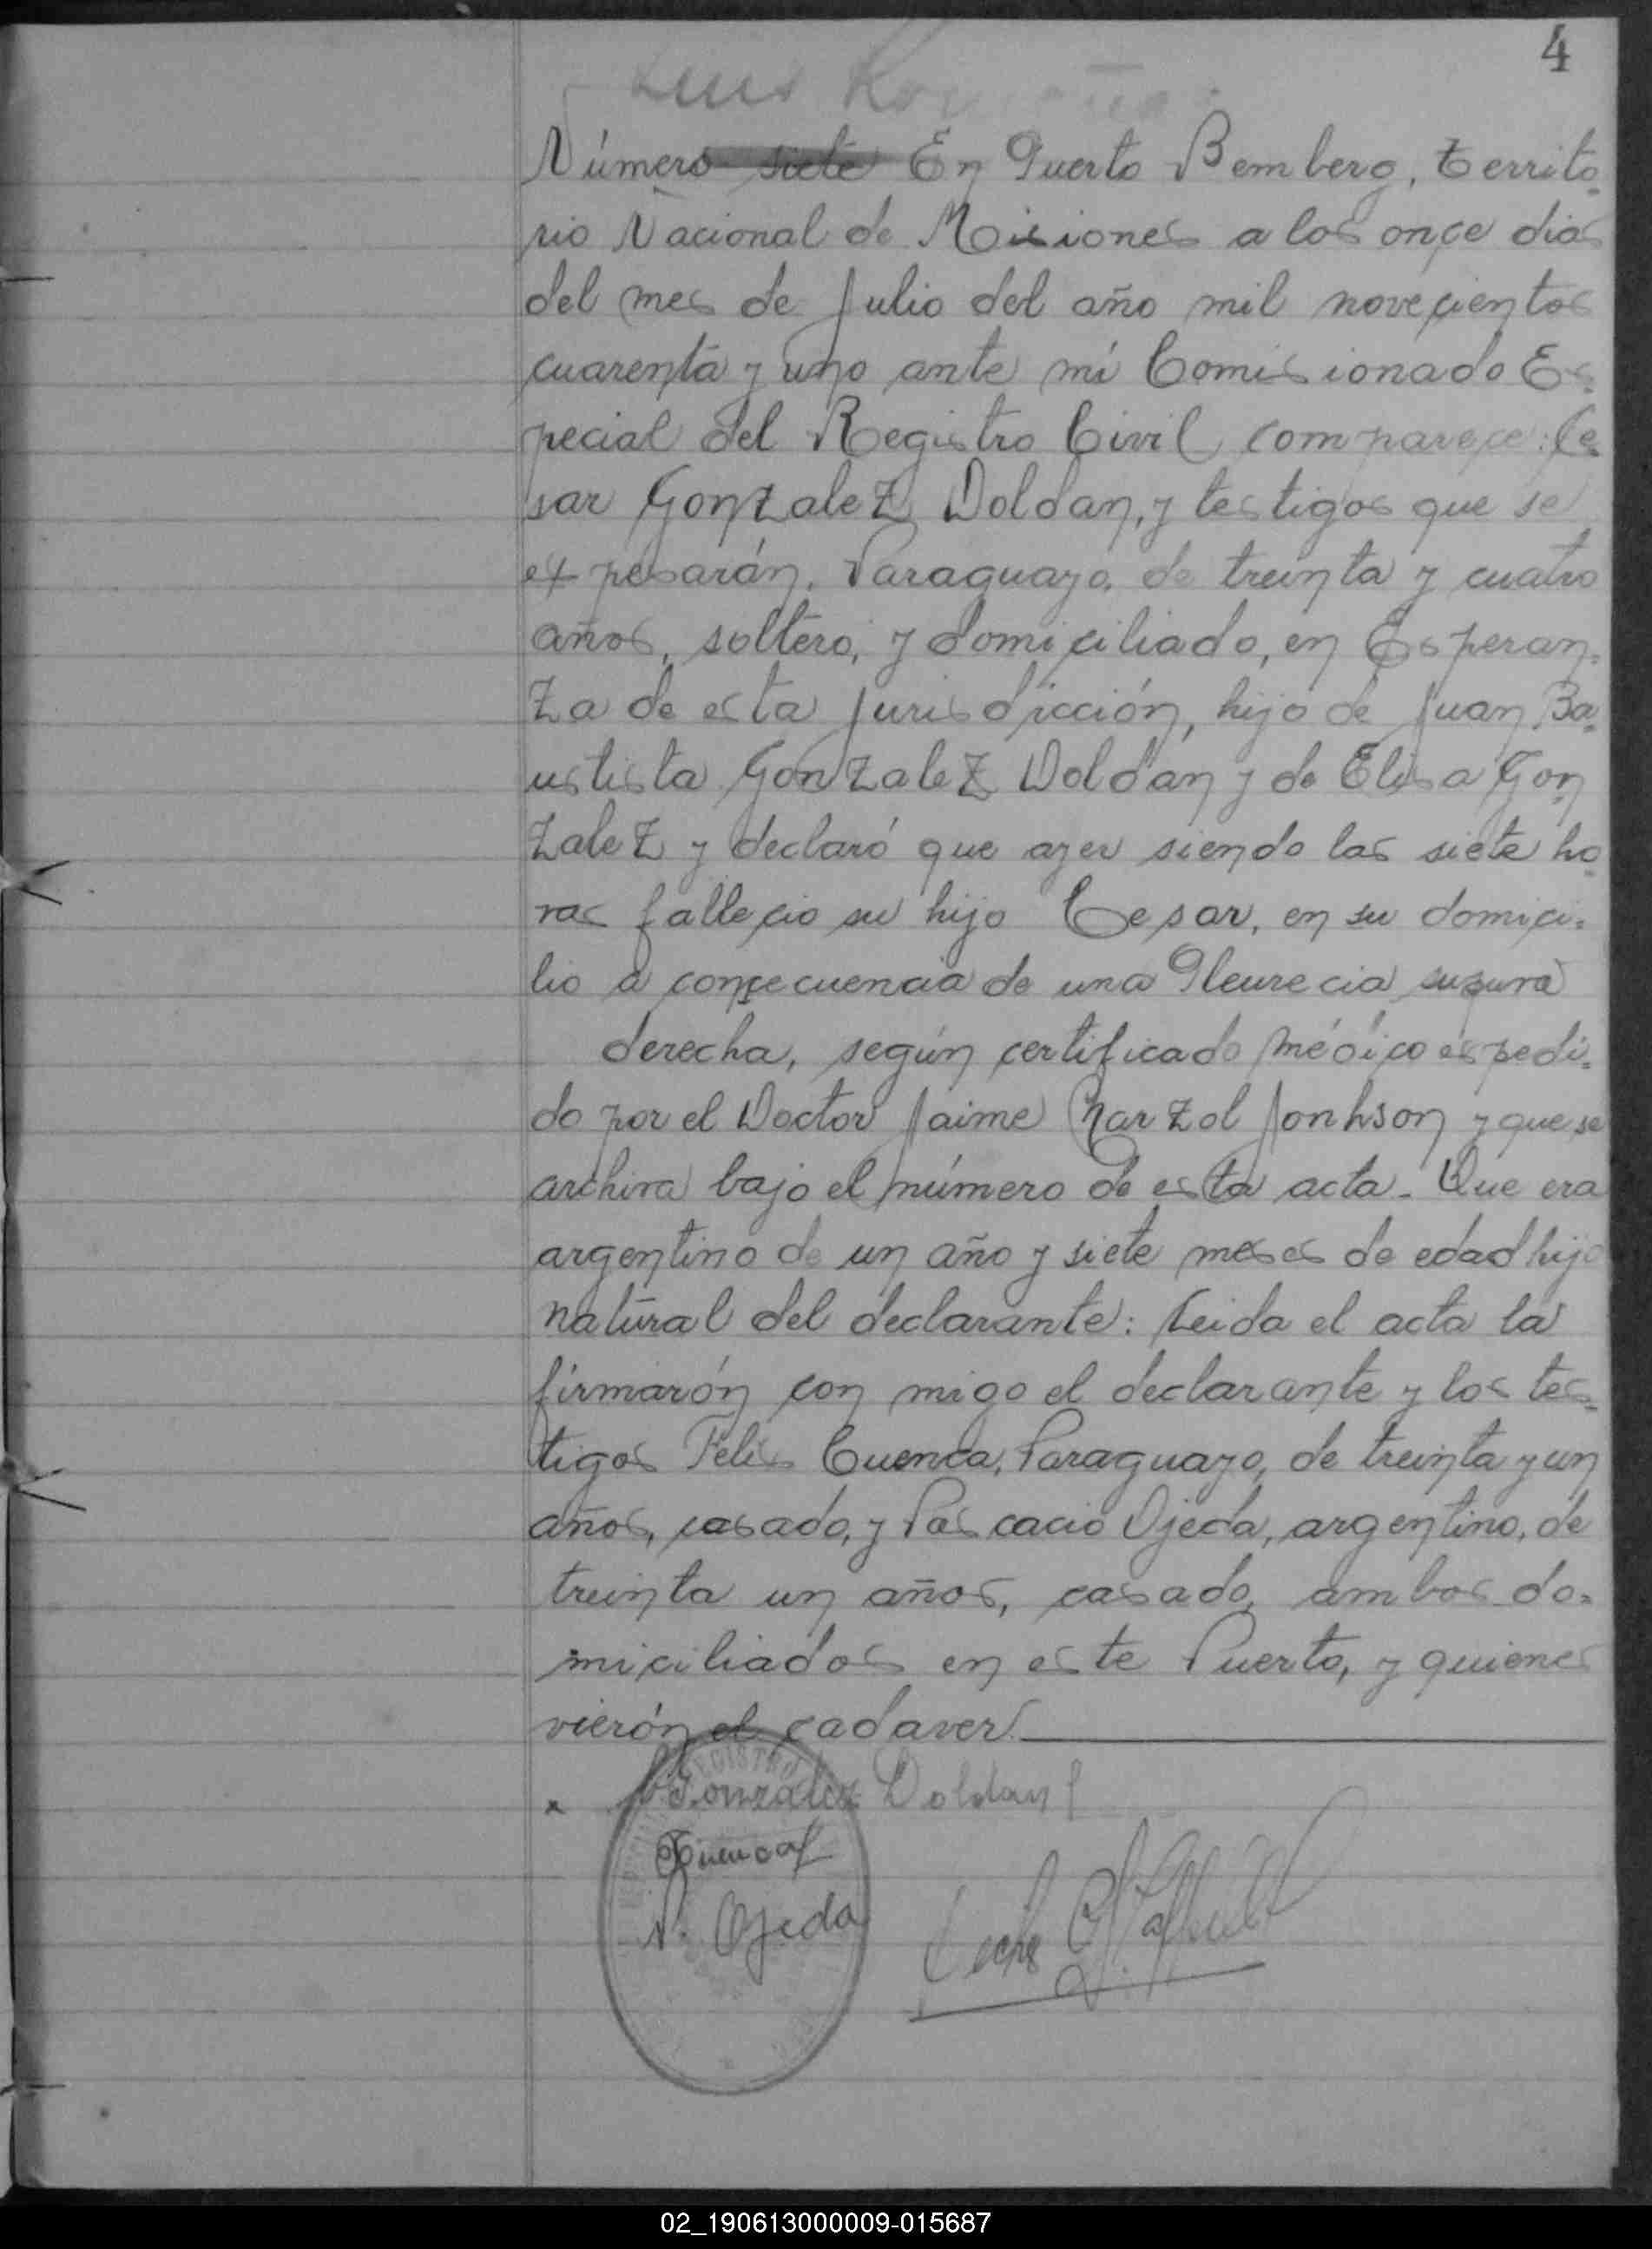 4
Número siete En Puerto Bemberg, territo
rio Nacional de Misiones a los once dias
del mes de Julio del año mil novecientos
cuarenta y uno ante mí Comisionado Es
pecial del Registro Civil comparece: Ce
sar Gonzalez Doldan, y testigos que se
expesarán, Paraguayo, de treinta y cuatro
años, soltero, y domiciliado, en Esperan-
za de esta Jurisdicción, hijo de Juan Ba-
ustista Gonzalez Doldán y de Elisa Gon
zalez y declaró que ayer siendo las siete ho
ras fallecio su hijo Cesar, en su domici=
lio a consecuencia de una Pleurecia supura
derecha, según certificado médico espedi=
do por el Doctor Jaime Jonhson y que se
archiva bajo el número de esta acta. Que era
argentino de un año y siete meses de edad hijo
natural del declarante: Leida el acta la
firmarón con migo el declarante y los tes-
tigos Felis Cuenca, Paraguayo, de treinta y un
años, casado, y Pascacio Ojeda, argentino, de
treinta un años, casado, ambos do=
miciliados en este Puerto, y quienes
vierón el cadaver.
Gonzalez Doldan
Cuenca
P. Ojeda
REGISTRO
02_190613000009-015687